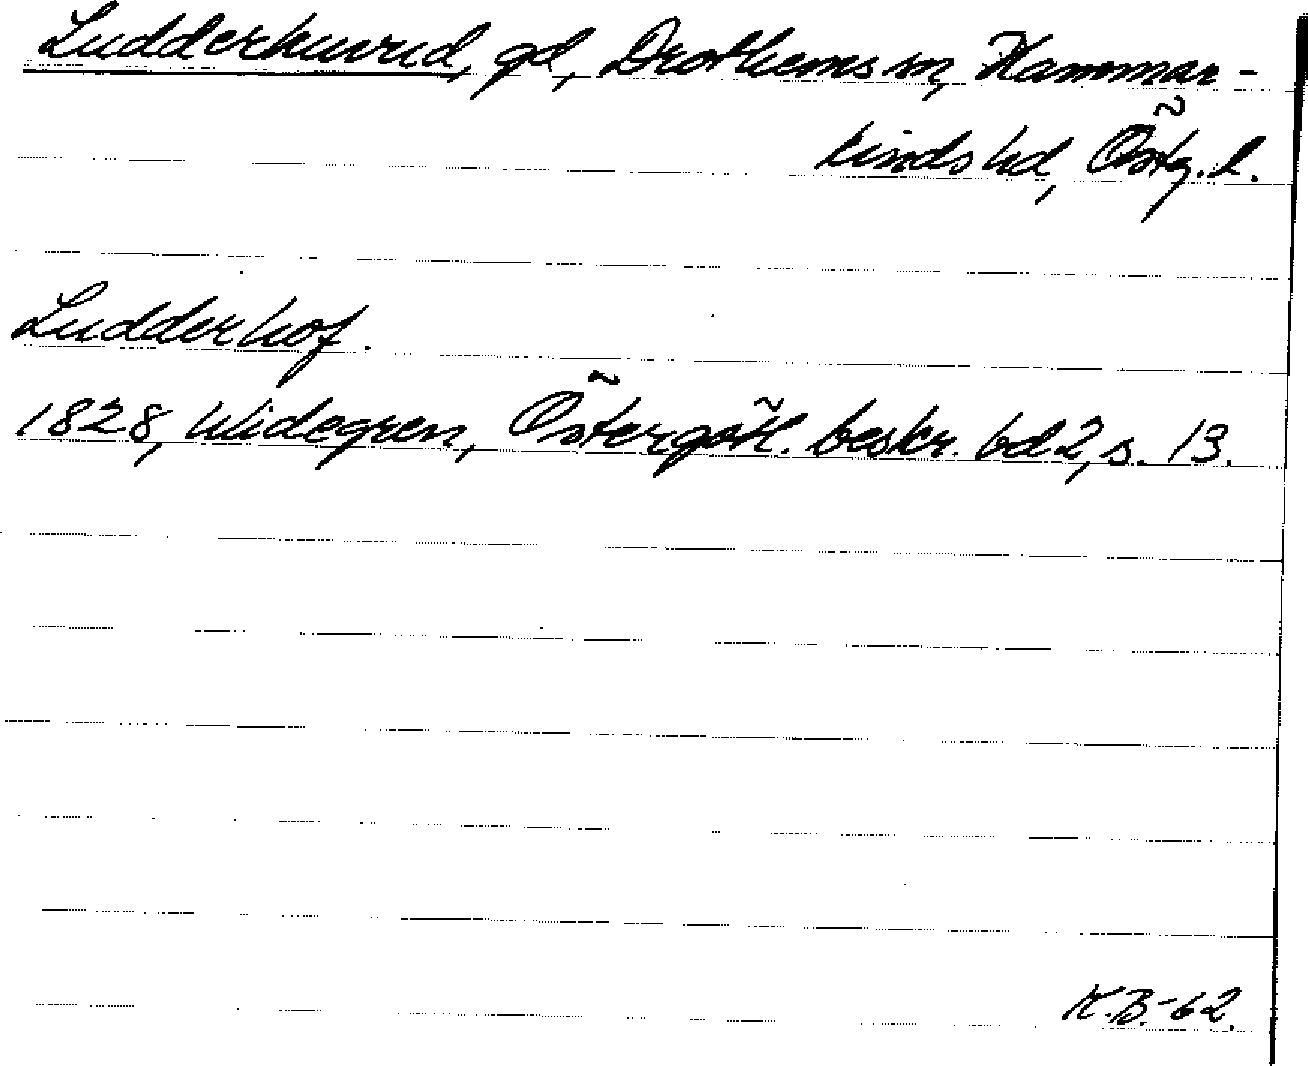 Ludderhuvud, gd, Drothems sn, Hammar-
kinds hd, Östg. l.
Ludderhof.
1828, Widegren, Östergötl. beskr. bd 2, s. 13.
K.B.-62.